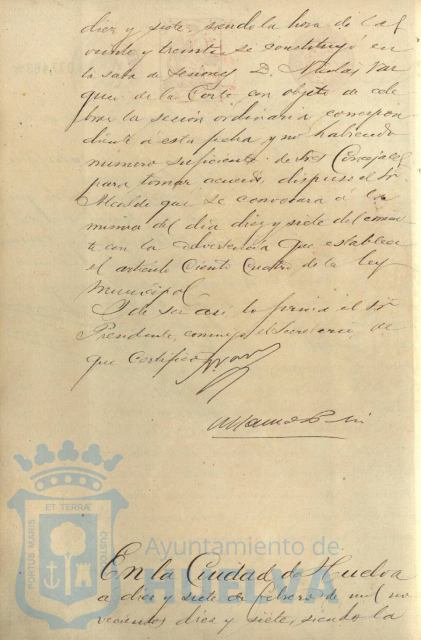 diez y siete, siendo la hora de las
veinte y treinta, se constituyó en
la sala de sesiones D. Nicolas Vaz
quez de la Corte con objeto de cele
brar la sesión ordinaria correspon
diente a esta fecha y no habiendo
numero suficiente de Sres Concejales
para tomar acuerdo, dispuso el Sr.
Alcalde que se convocara á la
misma del dia diez y siete del
con la advertencia que establece
el artículo Ciento Cuatro de la ley
Municipal.
Y de ser asi, lo firma el Sr.
Presidente, conmigo el Secretario de
que certifico
ET TERRÆ
PORTUS MARIS
CUSTODIA
Ayuntamiento de
HUELVA
En la Ciudad de Huelva
a diez y siete de febrero de mil no
vecientos diez y siete, siendo la